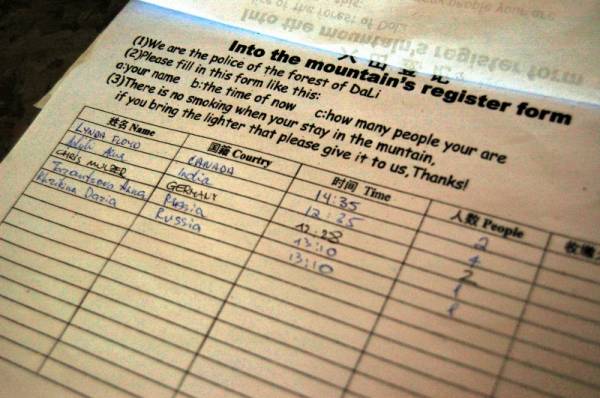 入山登记
Into the mountain's register form
(1)We are the police of the forest of DaLi
(2)Please fill in this form like this:
a:your name b:the time of now c:how many people your are
(3)There is no smoking when your stay in the muntain,
if you bring the lighter that please give it to us,Thanks!
姓名 Name 国籍 Courtry 时间 Time 人数 People
LYNDA FLOYD CANADA 14:35 2
India 12:25 4
CHRIS GERMANY 12:28 2
Anna Russia 13:10 1
Daria Russia 13:10 1